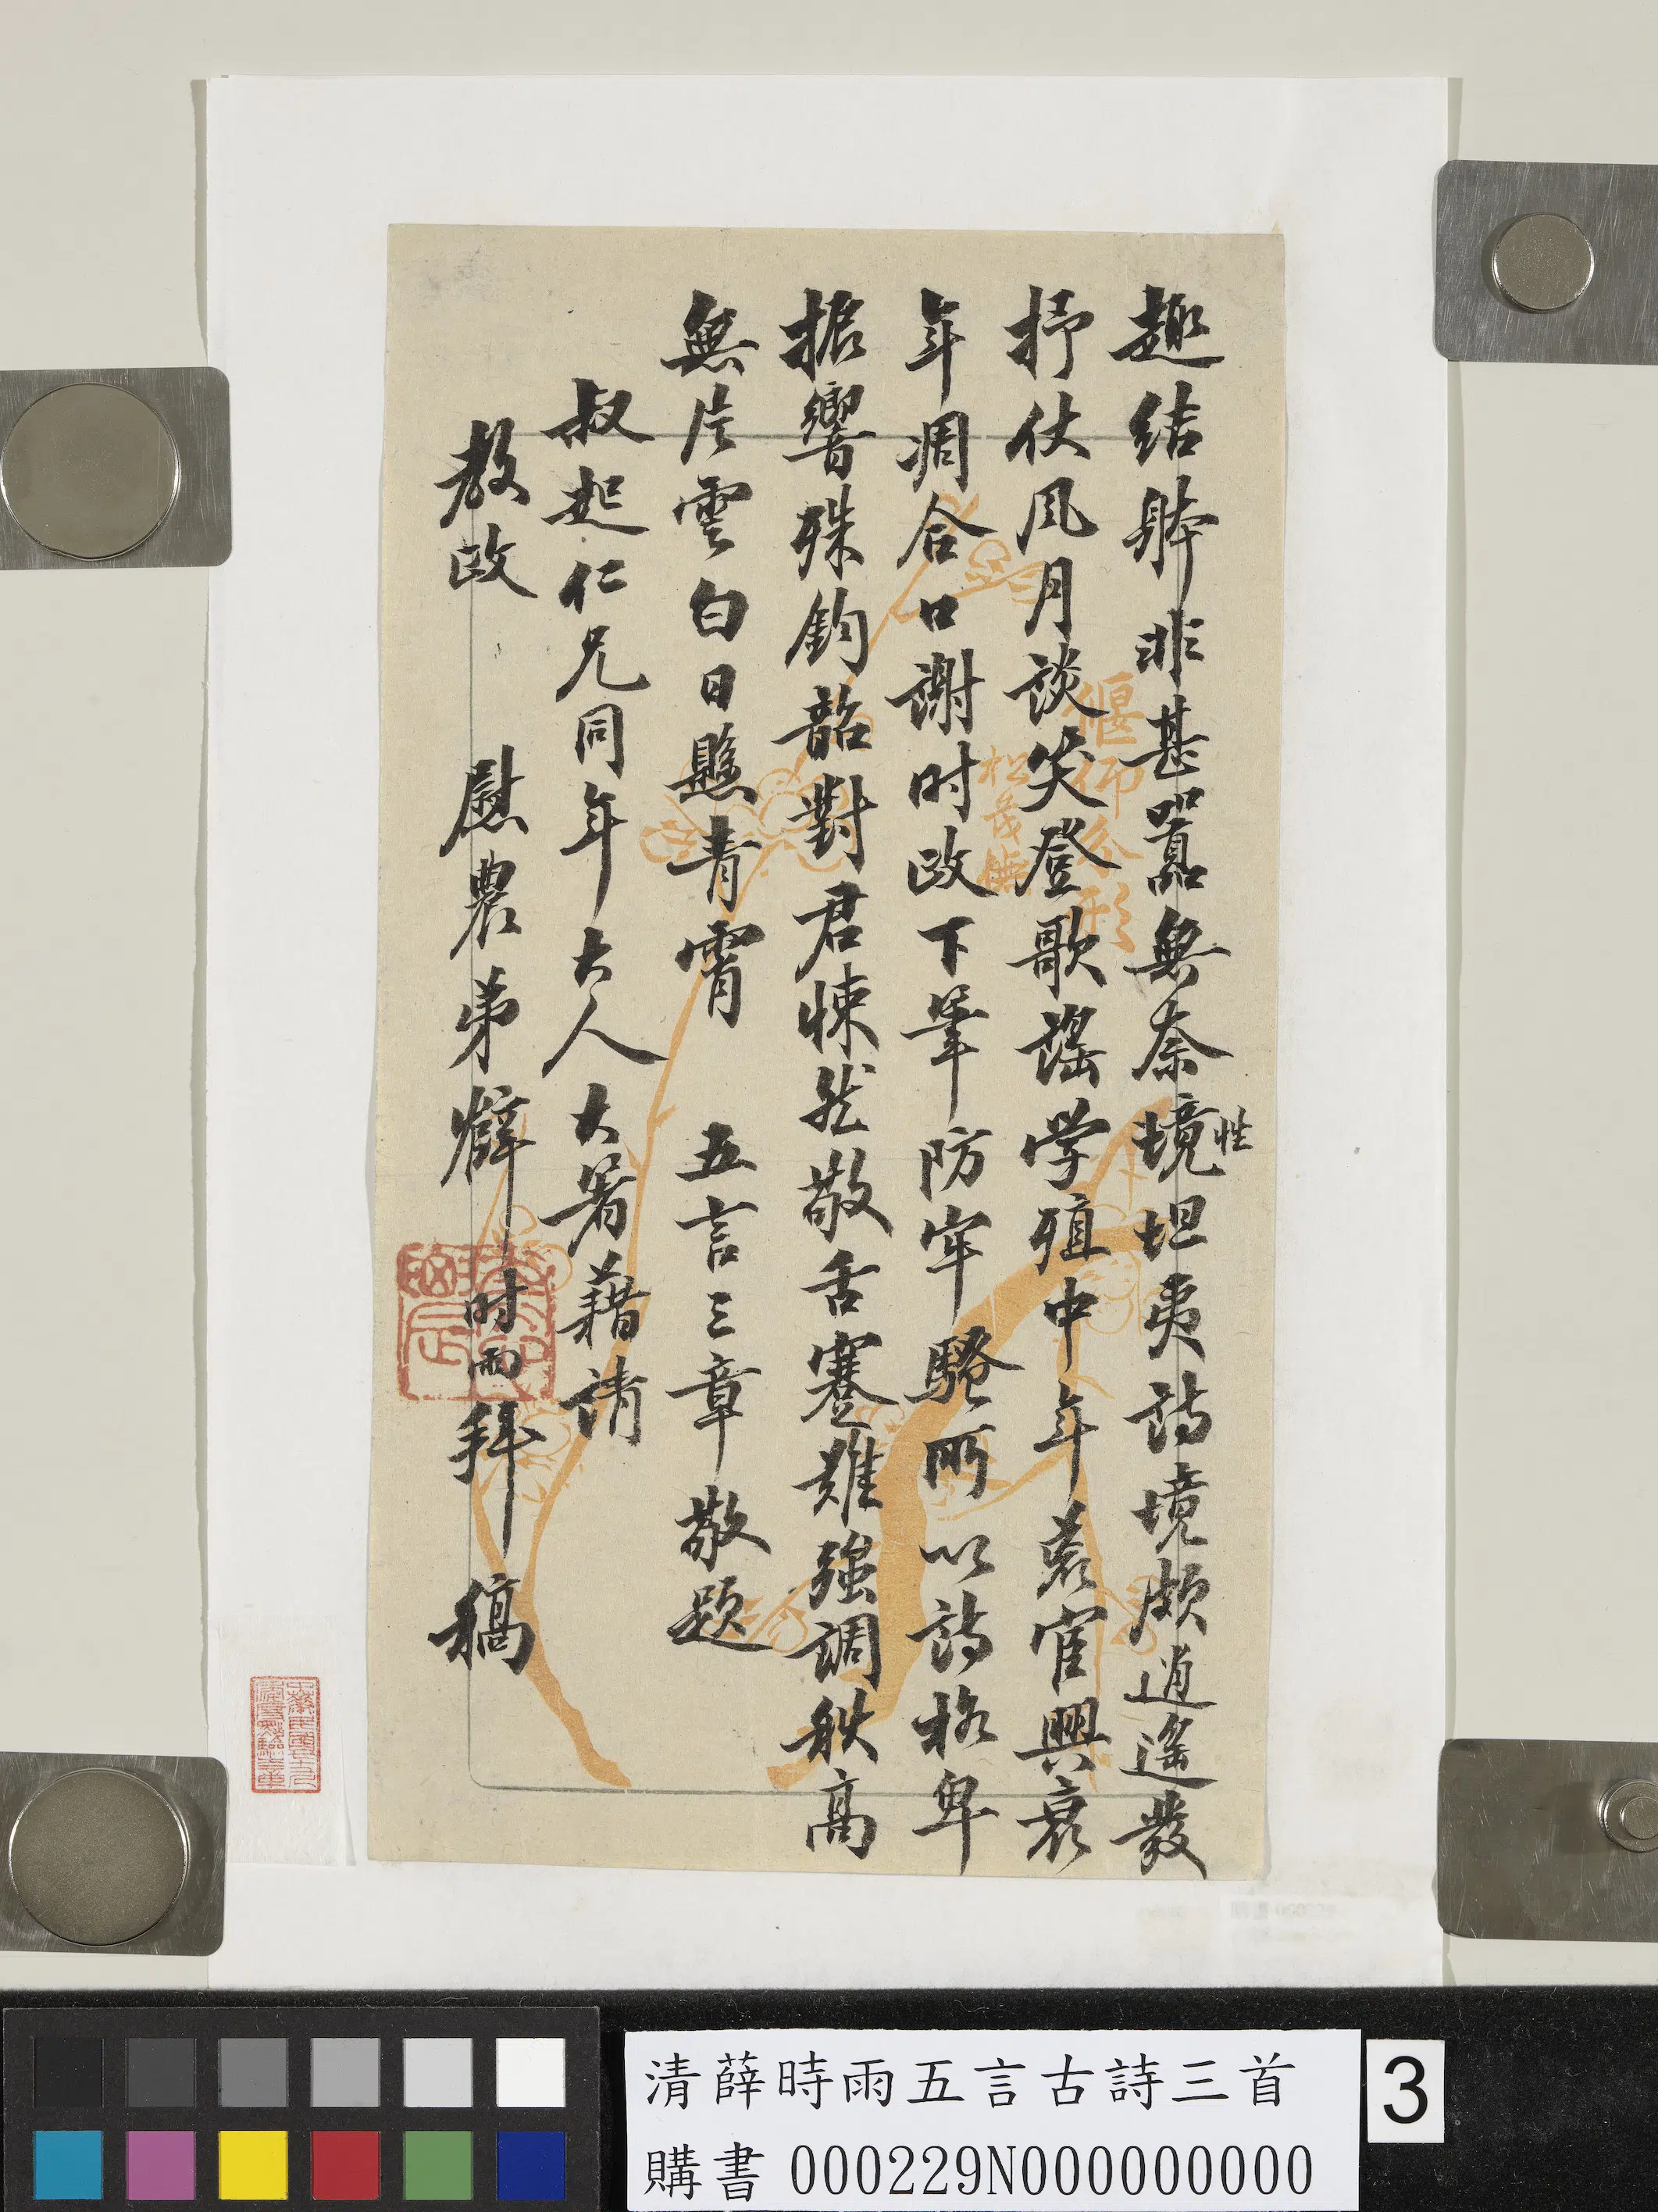 趣結躰非甚囂無奈境坦夷詩境頗逍遙發
性
抒仗风月談笑登歌謠学殖中年荒宦興衰
年凋合口謝时政下筆防牢騷所以詩格卑
振響殊鈞韶對君悚然敬舌蹇難強調秋高
無片雲白日懸青霄 五言三章敬題
叔起仁兄同年大人大著藉請
教政 慰農弟薛时雨拜稿
偃仰
松茂
清薛時雨五言古詩三首
購書 000229N000000000
3